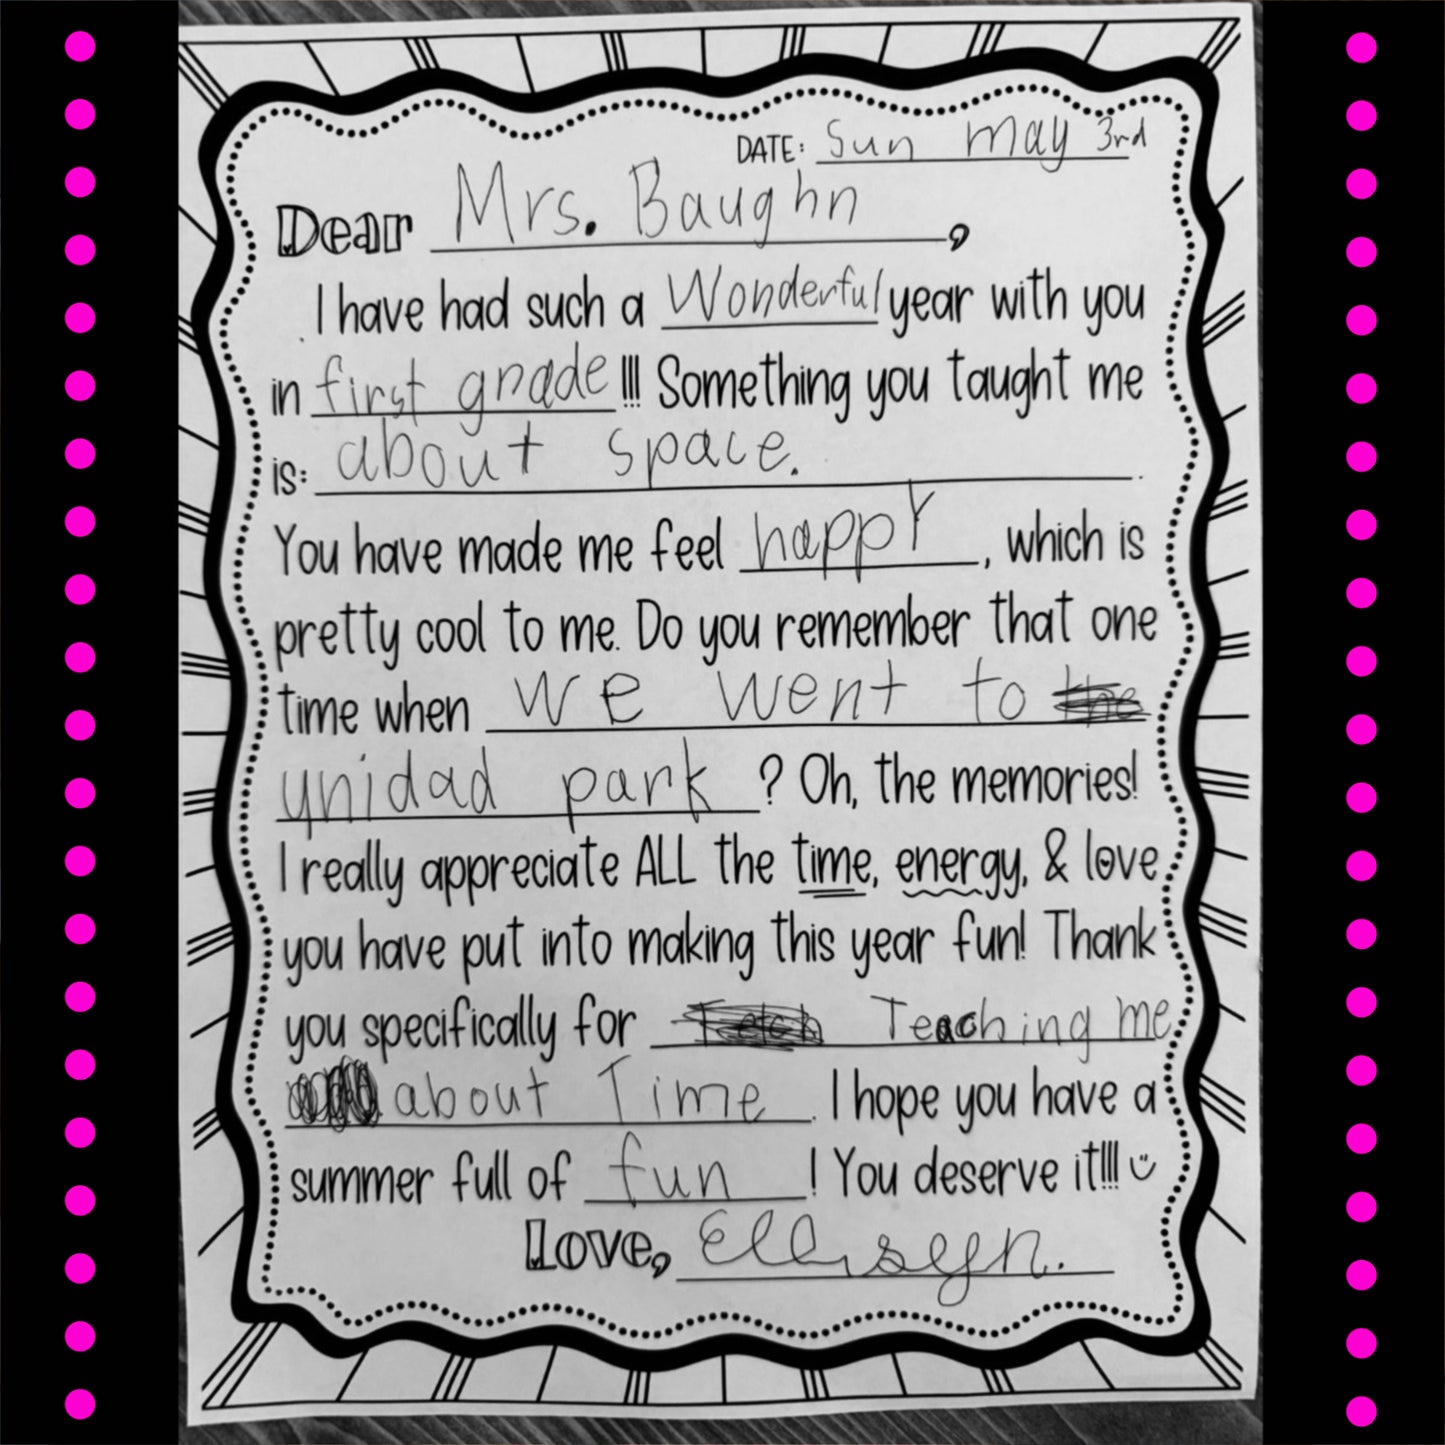 DATE: Sun May 3rd
Dear Mrs. Baughn,
I have had such a Wonderful year with you
in first grade!!! Something you taught me
is: about space.
You have made me feel happy, which is
pretty cool to me. Do you remember that one
time when we went to the
unidad park? Oh, the memories!
I really appreciate ALL the time, energy, & love
you have put into making this year fun! Thank
you specifically for Teaching me
about Time. I hope you have a
summer full of fun! You deserve it!!!
Love, Ellisyn.